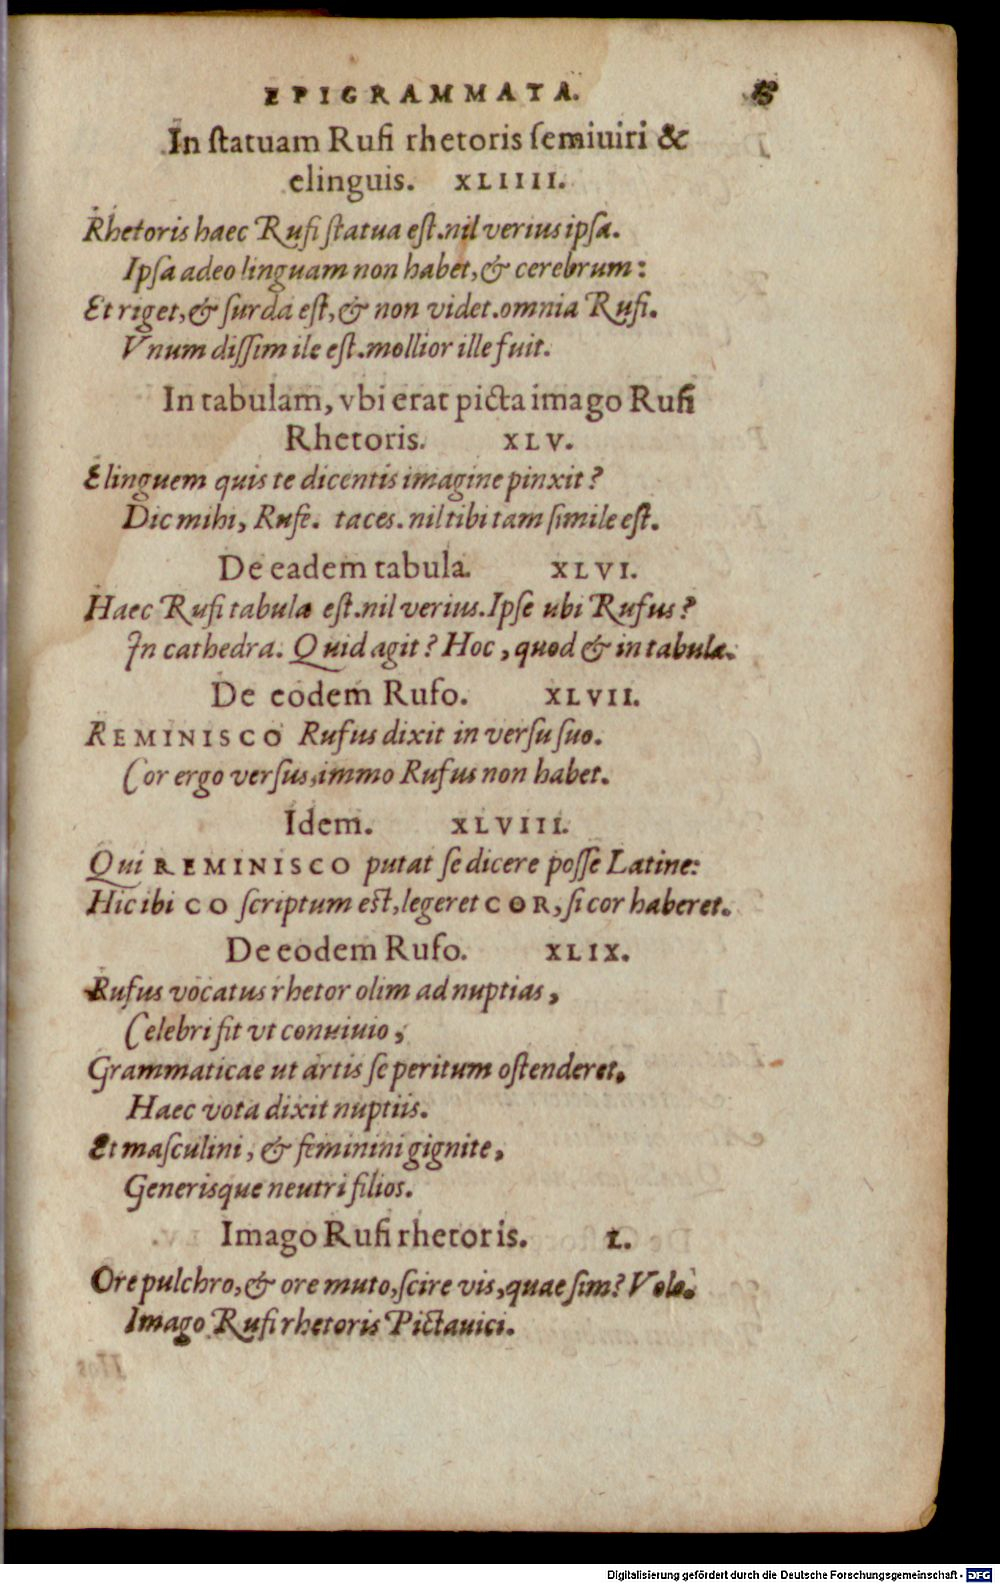 EPIGRAMMATA.
In statuam Rufi rhetoris semiuiri &
elinguis. XLIIII.
Rhetoris haec Rufi statua est. nil verius ipsa.
Ipsa adeo linguam non habet, & cerebrum:
Et riget, & surda est, & non videt. omnia Rufi.
Vnum dissimile est. mollior ille fuit.
In tabulam, vbi erat picta imago Rufi
Rhetoris. XLV.
Elinguem quis te dicentis imagine pinxit?
Dic mihi, Rufe. taces. nil tibi tam simile est.
De eadem tabula. XLVI.
Haec Rufi tabula est. nil verius. Ipse ubi Rufus?
In cathedra. Quid agit? Hoc, quod & in tabula.
De eodem Rufo. XLVII.
REMINISCO Rufus dixit in versu suo.
Cor ergo versus, immo Rufus non habet.
Idem. XLVIII.
Qui REMINISCO putat se dicere posse Latine:
Hic ibi CO scriptum est, legeret COR, si cor haberet.
De eodem Rufo. XLIX.
Rufus vocatus rhetor olim ad nuptias,
Celebri fit vt conuiuio,
Grammaticae ut artis se peritum ostenderet.
Haec vota dixit nuptiis.
Et masculini, & feminini gignite,
Generisque neutri filios.
Imago Rufi rhetoris. L.
Ore pulchro, & ore muto, scire vis, quae sim? Volo.
Imago Rufi rhetoris Pictauici.
Digitalisierung gefördert durch die Deutsche Forschungsgemeinschaft - DFG